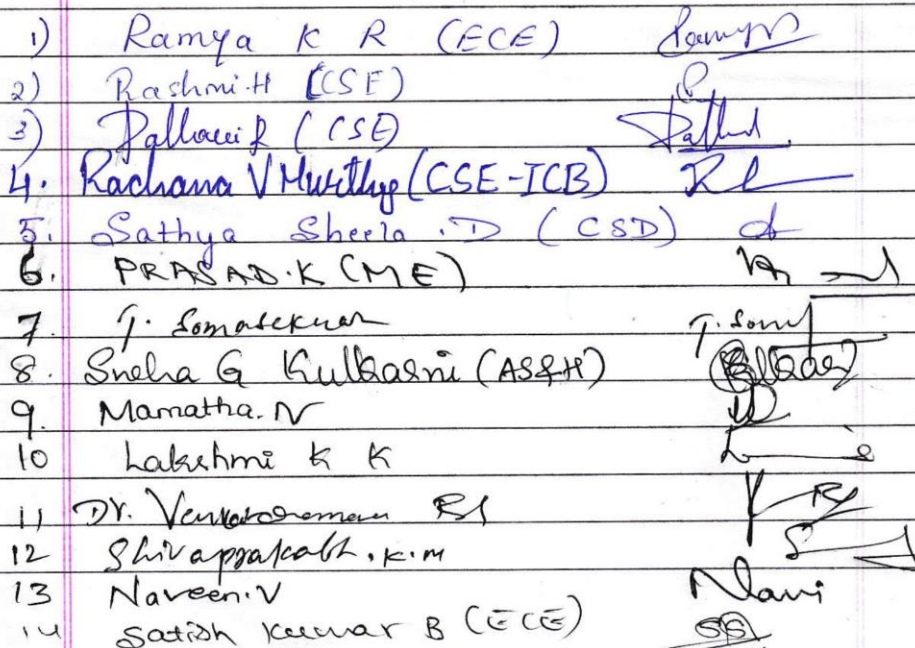 1) Ramya K R (ECE) Ramya
2) Rashmi.H (CSE)
3) Pallavi R (CSE)
4. Rachana V Murthy (CSE-ICB)
5. Sathya Sheela .D (CSD)
6. PRASAD.K (ME)
7. T. Somasekhar T. Som
8. Sneha G Kulkarni (AS&H)
9. Mamatha.N
10 Lakshmi K K
11 Dr. Venkataraman
12 Shivaprakash.K.M
13 Naveen.V Navi
14 Satish Kumar B (ECE)